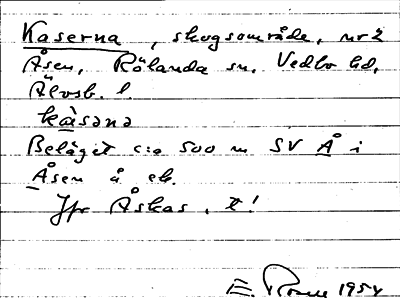 Kaserna, skogsområde, nr 2
Åsen, Rölanda sn, Vedbo hd,
Älvsb. l.
kàsəna
Beläget c:a 500 m SV Å i
Åsen å ek.
Jfr Åskas, t!
E. 1954